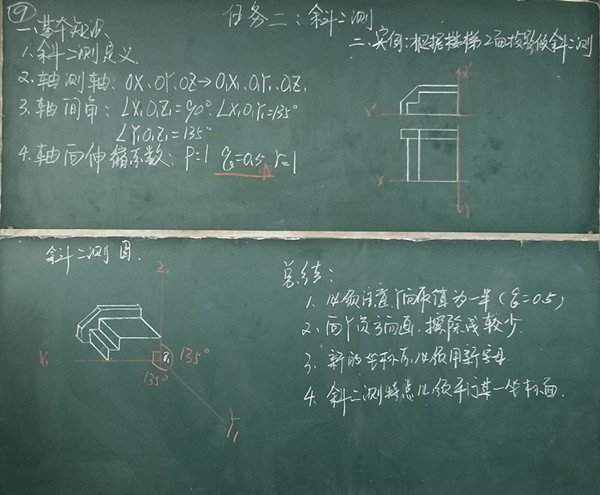 ⑨
任务二：斜二测
一、基本知识
1. 斜二测定义
2. 轴测轴：OX、OY、OZ→O₁X₁、O₁Y₁、O₁Z₁
3. 轴间角：∠X₁O₁Z₁=90° ∠X₁O₁Y₁=135°
∠Y₁O₁Z₁=135°
4. 轴向伸缩系数：P=1 q=0.5 r=1
二、实例：根据楼梯2面投影做斜二测
X'
X
斜二测图
Z₁
X₁
135°
135°
Y₁
总结：
1. 必须注意Y向取值为一半（q=0.5）
2. 擦除线较少.
3. 新的坐标系必须用新字母
4. 斜二测特点必须平行某一坐标面.